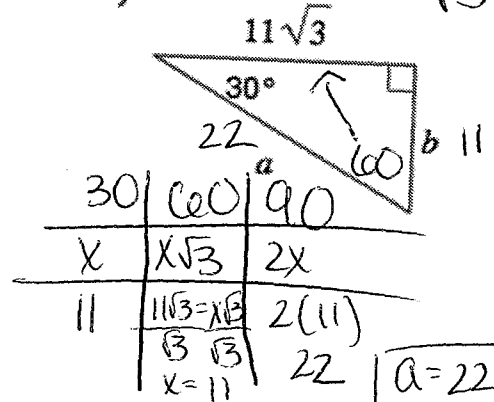 11√3
30°
22
60
b 11
a
30 | 60 | 90
x | x√3 | 2x
11 | 11√3 = x√3 | 2(11)
√3 √3
x = 11
22
a = 22